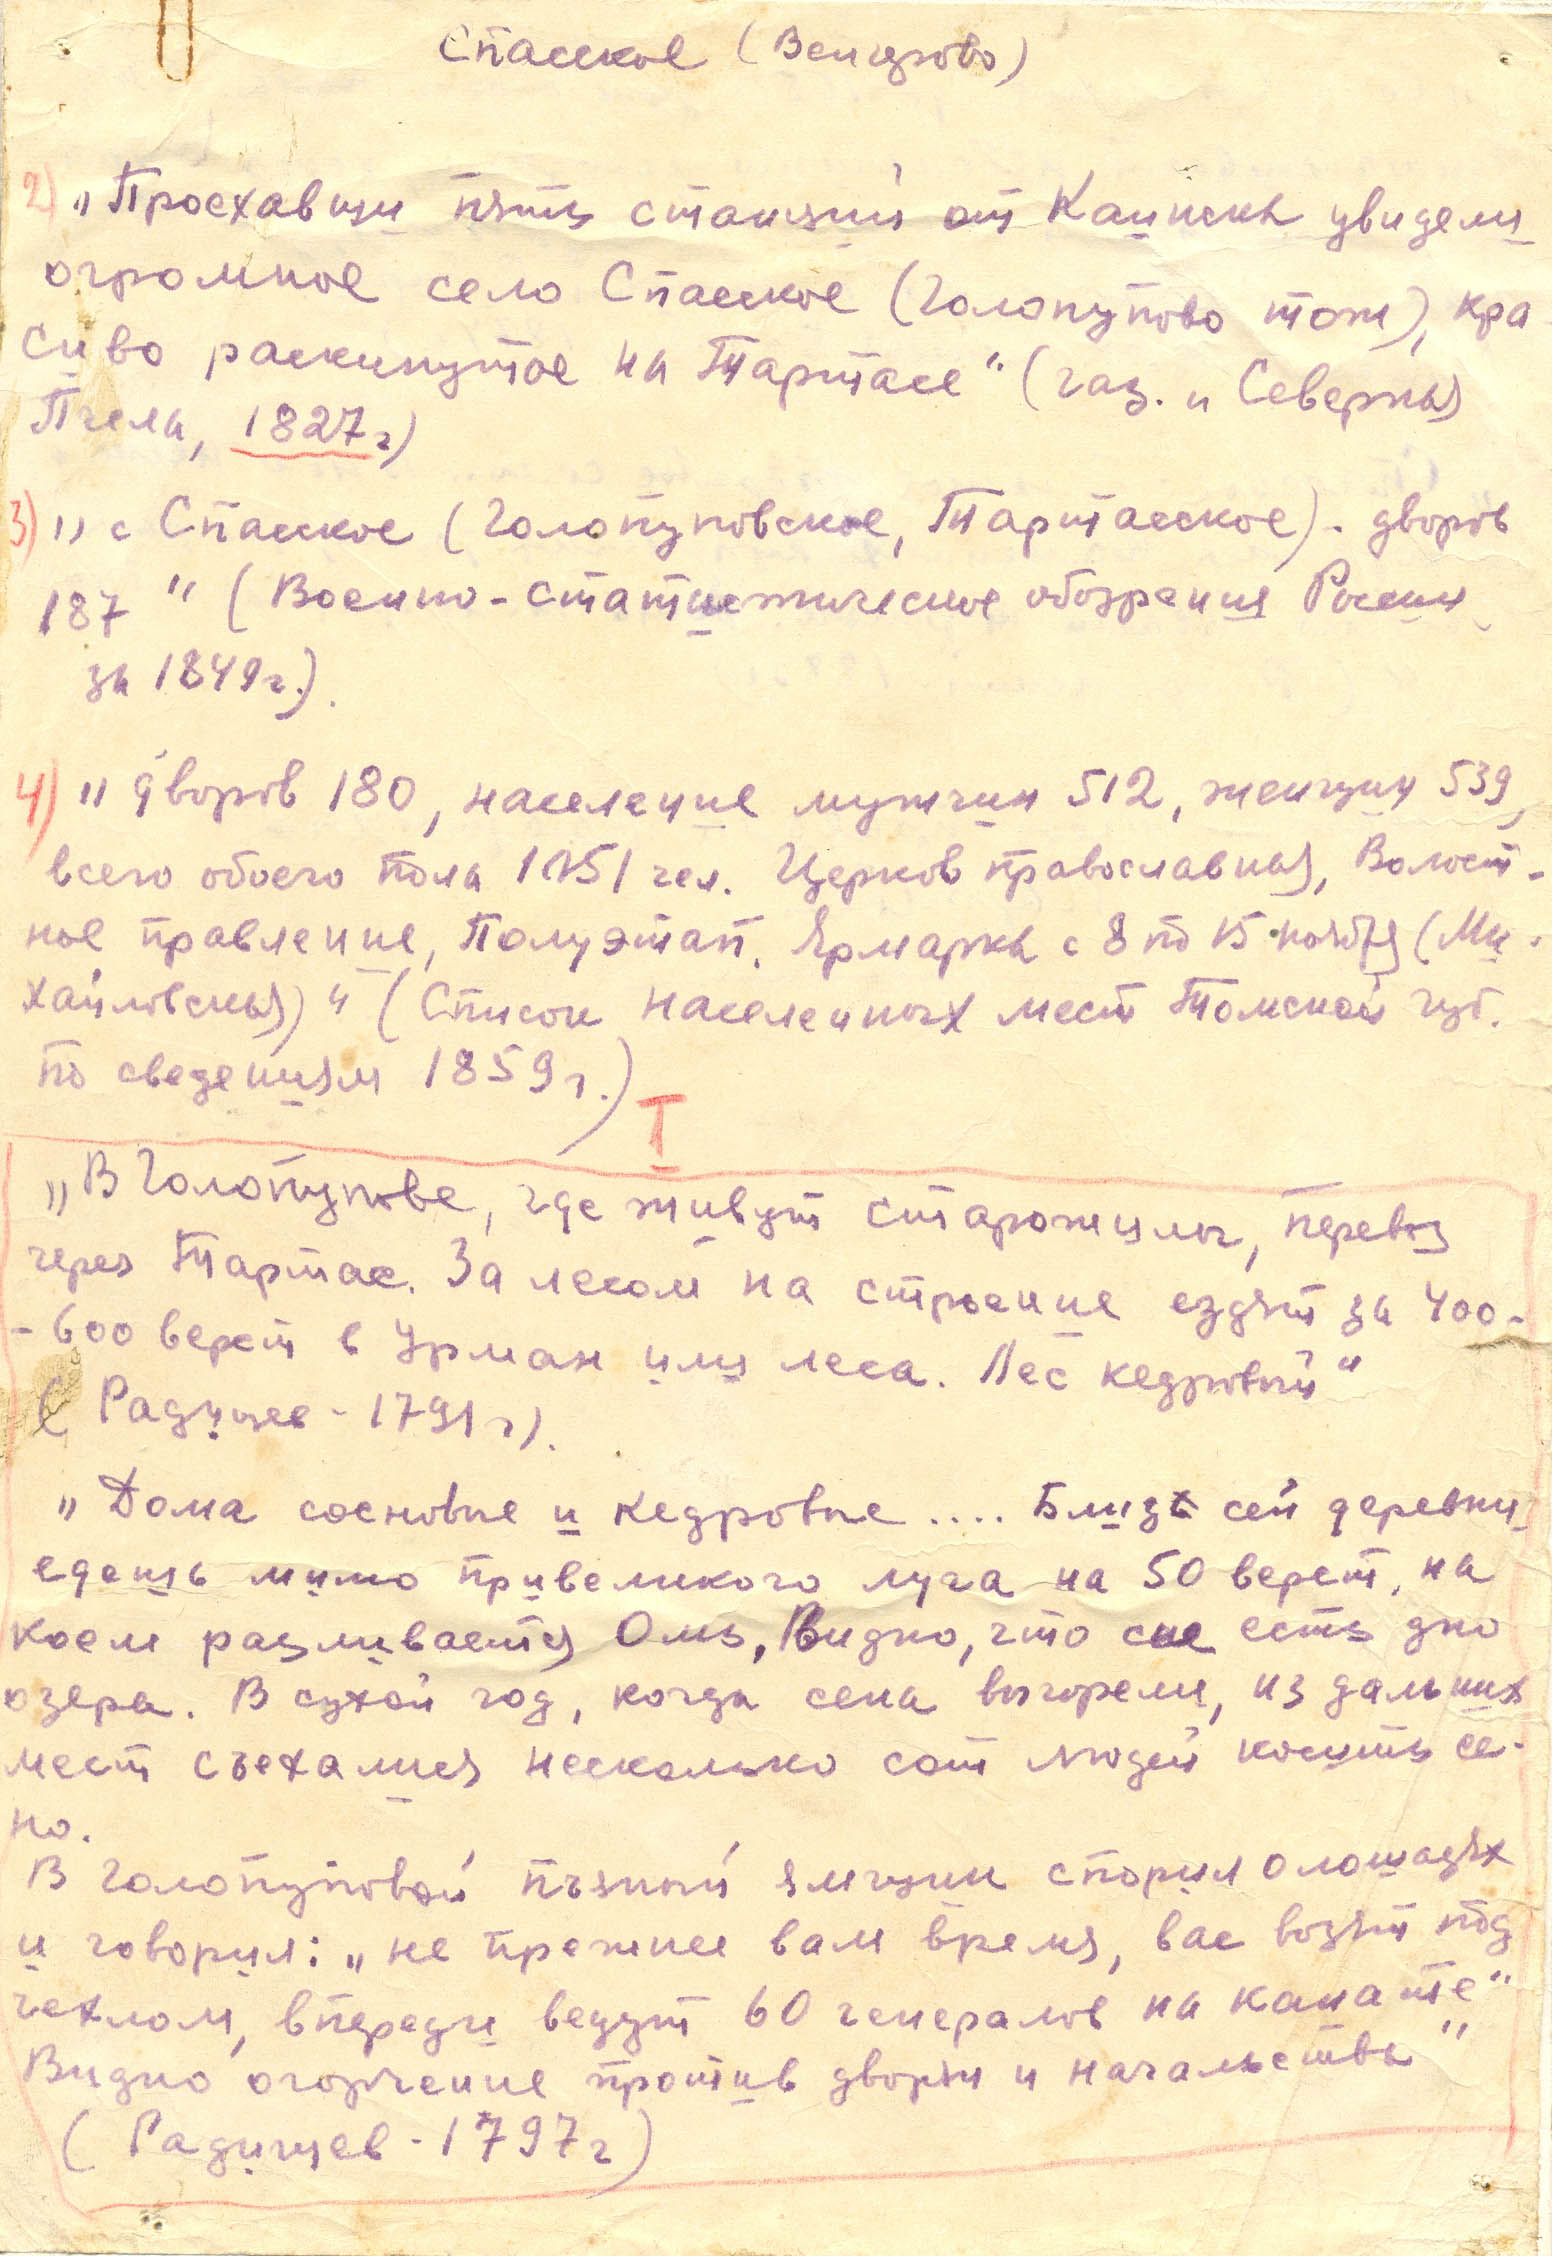 Спасское (Венгерово)
2) „Проехавши пять станций от Каинска увидели
огромное село Спасское (Голопупово тож), кра
сиво раскинутое на Тартасе" (газ. „ Северная
Пчела, 1827 г)
3) „ с Спасское (Голопуповское, Тартасское) - дворов
187 " (Военно-статистическое обозрения России
за 1849 г.).
4) „ дворов 180, население мужчин 512, женщин 539,
всего обоего пола 1051 чел. Церковь православная, Волост-
ное правление, Полуэтап. Ярмарка с 8 по 15 ноября (Ми-
хайловская) " (Список населенных мест Томской губ.
по сведениям 1859 г.)
I
„В Голопупове, где живут старожилы, перевоз
через Тартас. За лесом на строение ездят за 400-
- 600 верст в Урман или леса. Лес кедровый"
(Радищев - 1791 г).
„Дома сосновые и кедровые .... Близ сей деревни
едешь мимо привеликого луга на 50 верст, на
коем разливается Омь, Видно, что сие есть дно
озера. В сухой год, когда сена выгорели, из дальних
мест съехались несколько сот людей косить се-
но.
В Голопуповой пьяный ямщик спорил о лошадях
и говорил: „не прежнее вам время, вас возят под
чехлом, впереди ведут 60 генералов на канате"
Видно огорчение против дворян и начальства"
(Радищев - 1797 г)